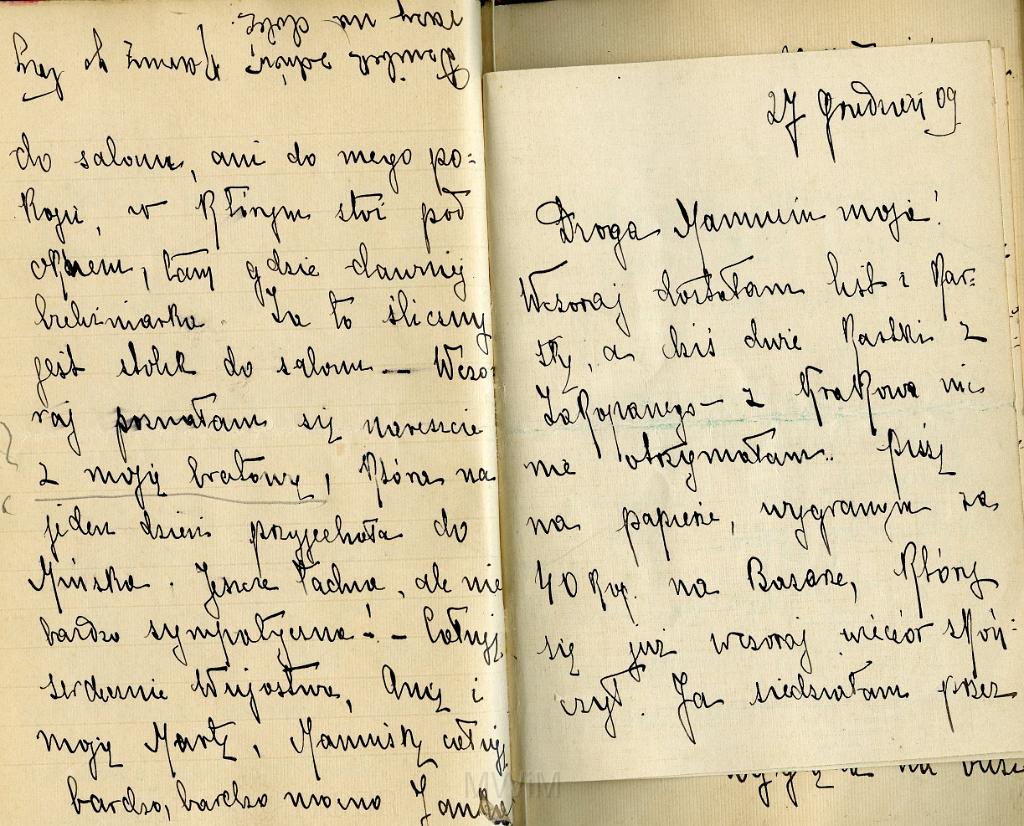 do salonu, ani do mego po=
koju, w którym stoi pod
oknem, tam gdzie dawniej
bieliźniarka. Za to śliczny
jest stolik do salonu – Wczo
raj poznałam się nareszcie
z moją bratową, która na
jeden dzień przyjechała do
Mińska. Jeszcze ładna, ale nie
bardzo sympatyczna! – Całuję
serdecznie Wujostwa, Anę i
moją Martę, Mamuśkę całuję
bardzo, bardzo mocno Janka
27 Grudzień 09
Droga Mamusiu moja!
Wczoraj dostałam list z Kar-
, a dziś duże kartki z
Zakopanego – z Krakowa nic
nie otrzymałam. Piszę
na papierze, wygranym za
40 kop. na Bazarze, który
się już wczoraj wieczór skoń-
czył. Ja siedziałam przez
MWiM